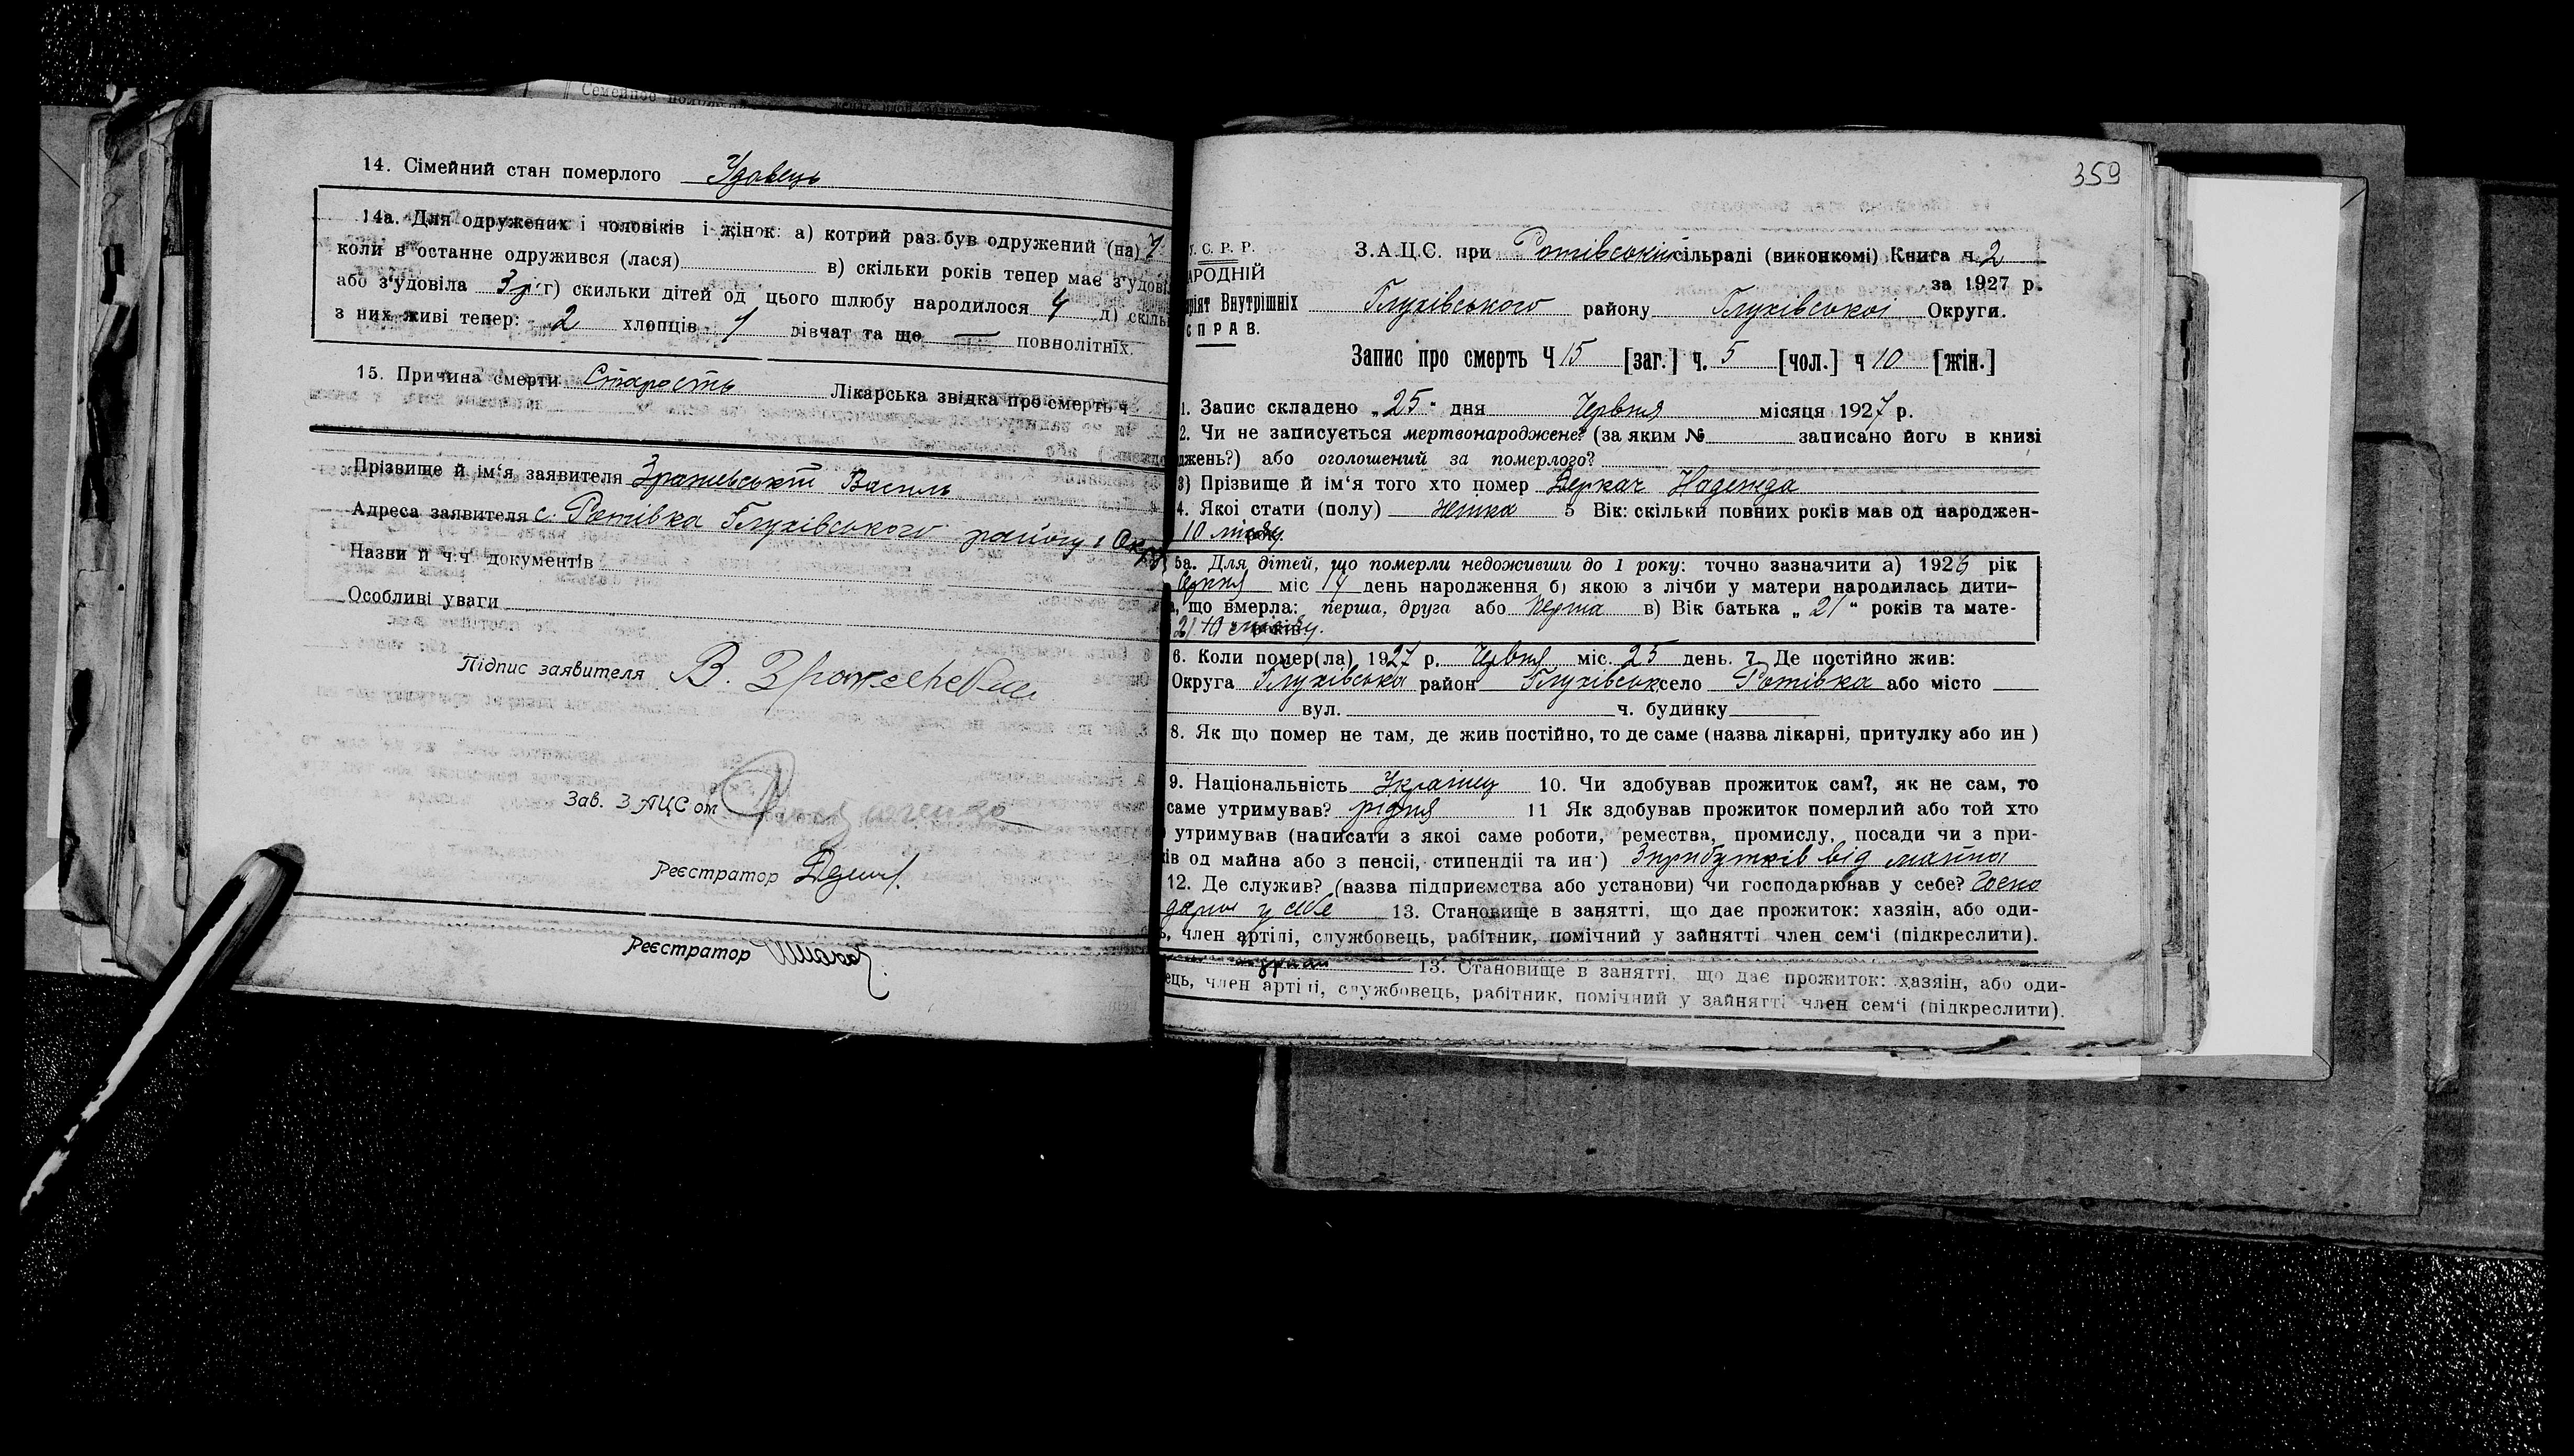 14. Сімейний стан померлого Удовець
14а. Для одружених і чоловіків і жінок: а) котрий раз був одружений (на) 1
коли в останне одружився (лася) в) скільки років тепер має з'удові
або з'удовіла 3 р. г) скильки дітей од цього шлюбу народилося 4 д) скіль
з них живі тепер: 2 хлопців 1 дівчат та ще — повнолітніх.
15. Причина смерти Старость Лікарська звідка про смерть ч
Прізвище й ім'я заявителя Василь
Адреса заявителя с. Ротівка Глухівського району і Окр
Назви й ч.ч. документів
Особливі уваги
Підпис заявителя В.
Зав. ЗАЦСом
Реєстратор
Реєстратор
359
У.С.Р.Р.
АРОДНІЙ
ріят Внутрішніх
СПРАВ.
З.А.Ц.С. при Ротівській сільраді (виконкомі) Книга ч. 2
за 1927 р.
Глухівського району Глухівської Округи.
Запис про смерть Ч 15 [заг.] ч. 5 [чол.] ч 10 [жін.]
1. Запис складено „25" дня Червня місяця 1927 р.
2. Чи не записується мертвонароджене? (за яким № записано його в книзі
джень?) або оголошений за померлого?
3) Прізвище й ім'я того хто помер Деркач Надежда
4. Якої стати (полу) жінка 5 Вік: скільки повних років мав од народжен-
10 місяц.
5а. Для дітей, що померли недоживши до 1 року: точно зазначити а) 1926 рік
Серпня міс 14 день народження б) якою з лічби у матери народилась дити-
а, що вмерла: перша, друга або перша в) Вік батька „21" років та мате-
21 років
6. Коли помер(ла) 1927 р. Червня міс. 25 день. 7 Де постійно жив:
Округа Глухівська район Глухівськ село Ротівка або місто —
вул. ч. будинку
8. Як що помер не там, де жив постійно, то де саме (назва лікарні, притулку або ин )
9. Національність Україец 10. Чи здобував прожиток сам?, як не сам, то
саме утримував? рідня 11 Як здобував прожиток померлий або той хто
утримував (написати з якої саме роботи, ремества, промислу, посади чи з при-
ків од майна або з пенсії, стипендії та ин ) З прибутків від майна
12. Де служив? (назва підприємства або установи) чи господарював у себе? Госпо
дарює у себе 13. Становище в занятті, що дає прожиток: хазяін, або оди-
ь, член артілі, службовець, рабітник, помічний у зайнятті член сем'ї (підкреслити).
13. Становище в занятті, що дає прожиток: хазяін, або оди-
ець, член артілі, службовець, рабітник, помічний у зайнятті член сем'ї (підкреслити).